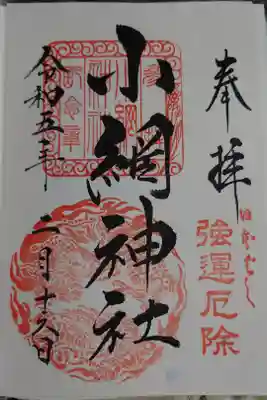 奉拝
日本ばし
強運厄除
小網神社
令和五年
二月十六日